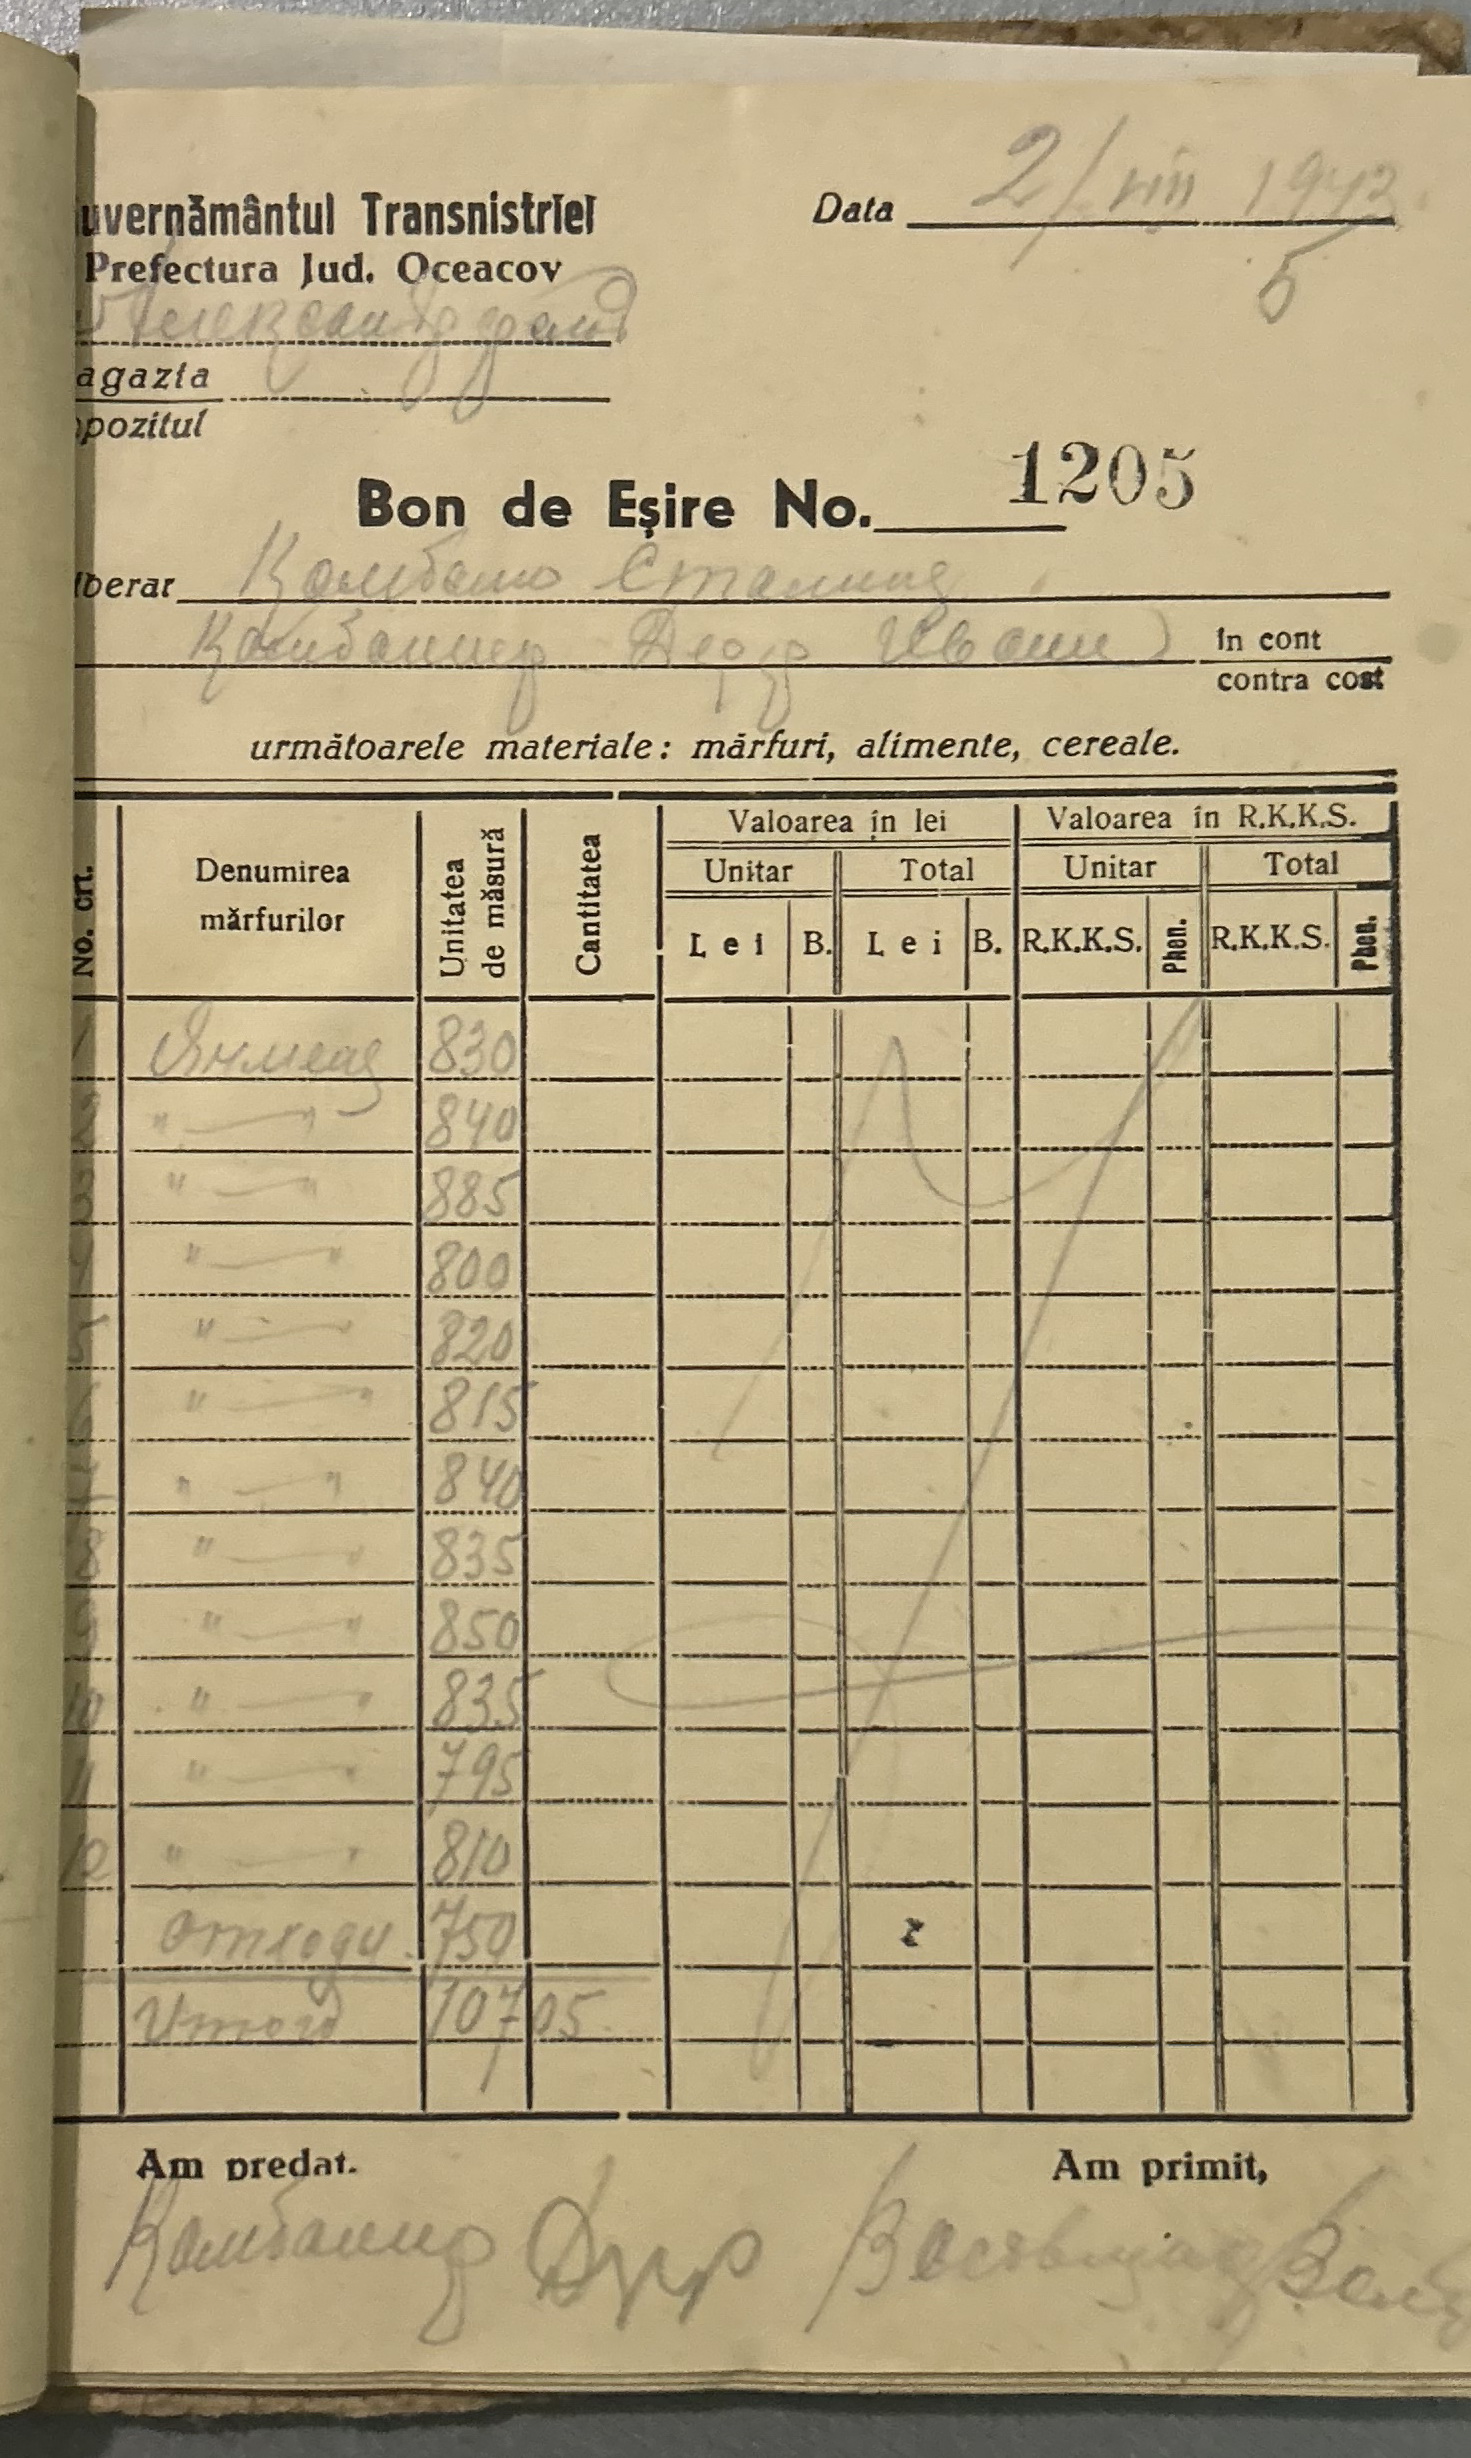 uvernământul Transnistriei
Data 2/VIII 1943
Prefectura Jud. Oceacov
5
agazia
pozitul
Bon de Eșire No. 1205
iberat Комбаин Сталинец
Комбайнер Иван in cont
contra cost
următoarele materiale: mărfuri, alimente, cereale.
No. crt. Denumirea mărfurilor Unitatea de măsură Cantitatea Valoarea în lei Valoarea în R.K.K.S.
Unitar Total Unitar Total
Lei B. Lei B. R.K.K.S. Phen. R.K.K.S. Phen.
Ячмень 830
2 " — " 840
3 " — " 885
" — " 800
5 " — " 820
6 " — " 815
7 " — " 840
8 " — " 835
9 " — " 850
10 " — " 835
11 " — " 795
12 " — " 810
Отходи 750
Итого 10705
Am predat. Am primit,
Комбайнер